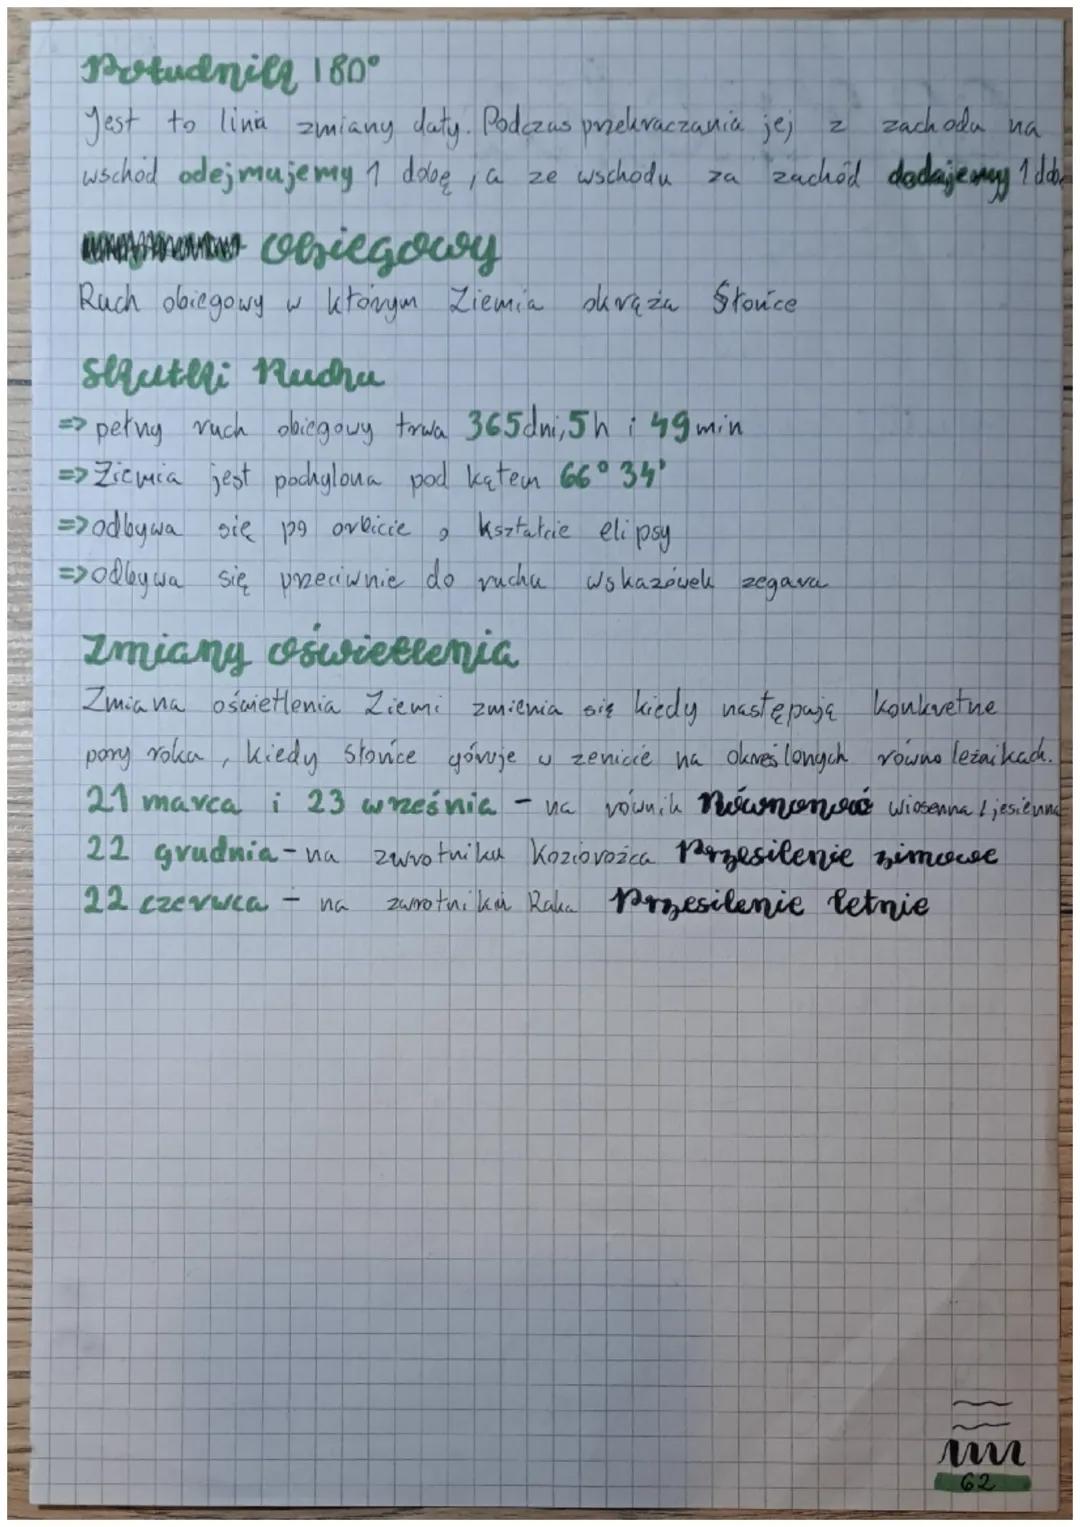 Południk 180°
Jest to linia zmiany daty. Podczas przekraczania jej z zachodu na
wschód odejmujemy 1 dobę, a ze wschodu za zachód dodajemy 1 dobę
Obiegowy
Ruch obiegowy w którym Ziemia okrąża Słońce
Skutki Ruchu
=> pełny ruch obiegowy trwa 365dni, 5h i 49min
=> Ziemia jest pochylona pod kątem 66° 34'
=> odbywa się po orbicie o kształcie elipsy
=> odbywa się przeciwnie do ruchu wskazówek zegara
Zmiany oświetlenia
Zmiana oświetlenia Ziemi zmienia się kiedy następują konkretne
pory roku, kiedy słońce góruje w zenicie na określonych równoleżnikach.
21 marca i 23 września - na równik Równonoc wiosenna / jesienna
22 grudnia - na zwrotniku Koziorożca Przesilenie zimowe
22 czerwca - na zwrotniku Raka Przesilenie letnie
62